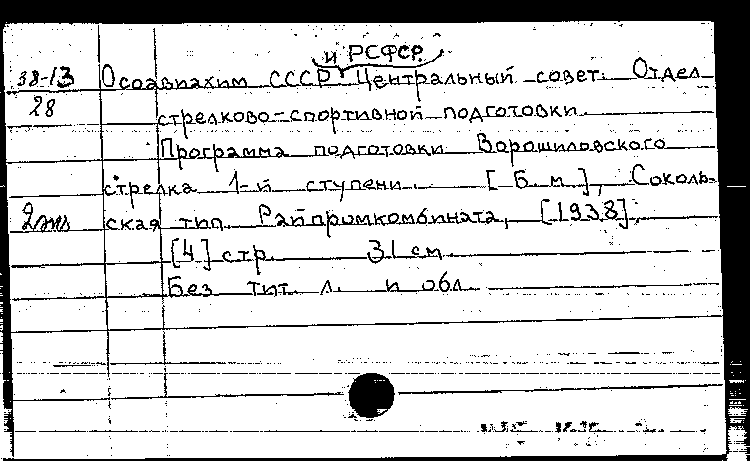 и РСФСР.
38-13 Осоавиахим СССР Центральный совет. Отдел
28 стрелково-спортивной подготовки.
Программа подготовки Ворошиловского
стрелка 1-й ступени. [Б. м.], Соколь-
2 экз ская тип. Райпромкомбината, [1938].
[4] стр. 31 см.
Без тит. л. и обл.